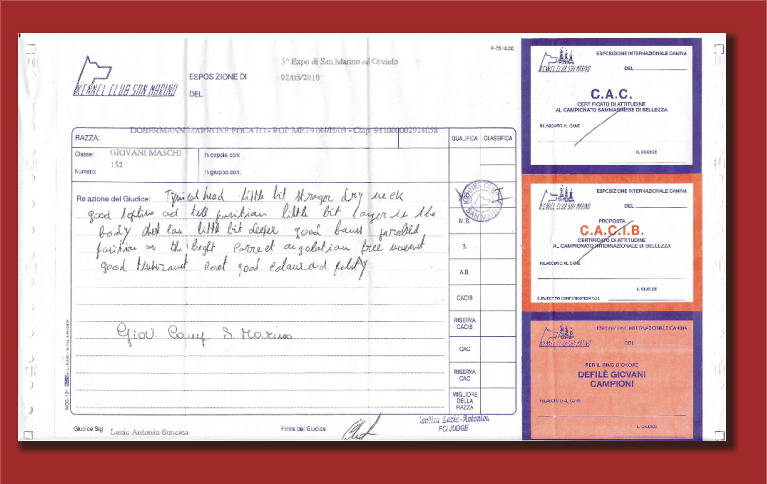 KENNEL CLUB SAN MARINO
ESPOSIZIONE DI
DEL
5^ Expo di San Marino ad Orvieto
02/05/2010
RAZZA:
DOBERMANN MARRONE FOCATO - ROI
Classe:
GIOVANI MASCHI
In coppia con:
Numero:
152
In gruppo con:
Relazione del Giudice:
Typical head little bit stronger dry neck
good topline and tail position little bit longer in the
body chest can little bit deeper good
position on the correct angulation free
good coat good colour and
Giov. Camp. S. Marino
QUALIFICA
CLASSIFICA
M.B.
B.
A.B.
CACIB
RISERVA
CACIB
CAC
RISERVA
CAC
MIGLIORE
DELLA
RAZZA
Giudice Sig.
Lazic Antonin Suncica
Firma del Giudice
FCI JUDGE
ESPOSIZIONE INTERNAZIONALE CANINA
KENNEL CLUB SAN MARINO
DEL
C.A.C.
CERTIFICATO DI ATTITUDINE
AL CAMPIONATO SAMMARINESE DI BELLEZZA
RILASCIATO AL CANE
IL GIUDICE
ESPOSIZIONE INTERNAZIONALE CANINA
KENNEL CLUB SAN MARINO
DEL
PROPOSTA
C.A.C.I.B.
CERTIFICATO DI ATTITUDINE
AL CAMPIONATO INTERNAZIONALE DI BELLEZZA
RILASCIATO AL CANE
IL GIUDICE
ESPOSIZIONE INTERNAZIONALE CANINA
KENNEL CLUB SAN MARINO
DEL
PER IL RING D'ONORE
DEFILÈ GIOVANI
CAMPIONI
RILASCIATO AL CANE
IL GIUDICE